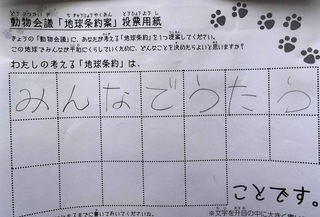 動物会議「地球条約案」投票用紙
きょうの「動物会議」に、あなたが考える「地球条約」を1つ提案してください。
この地球でみんなが平和にくらしていくために、どんなことを決めたらよいと思いますか?
わたしの考える「地球条約」は、
みんなでうたう
ことです。
※文字を升目の中に大きく